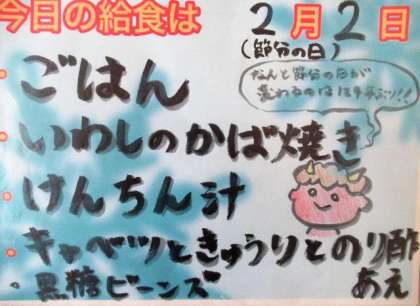 今日の給食は 2月2日
(節分の日)
なんと節分の日が
変わるのは124年ぶり!!
・ごはん
・いわしのかば焼き
・けんちん汁
・キャベツときゅうりとのり酢
あえ
・黒糖ビーンズ